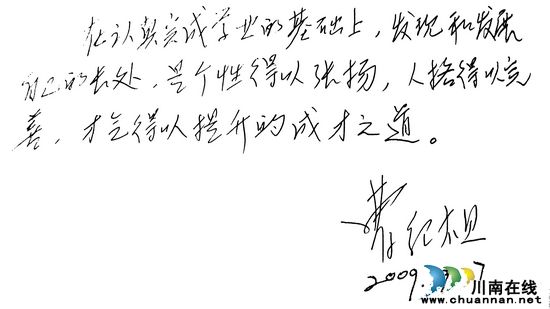 在认真完成学业的基础上，发现和发展
自己的长处，是个性得以张扬，人格得以完
善，才气得以提升的成才之道。
纪祖
2009 7
川南在线
www.chuannan.net